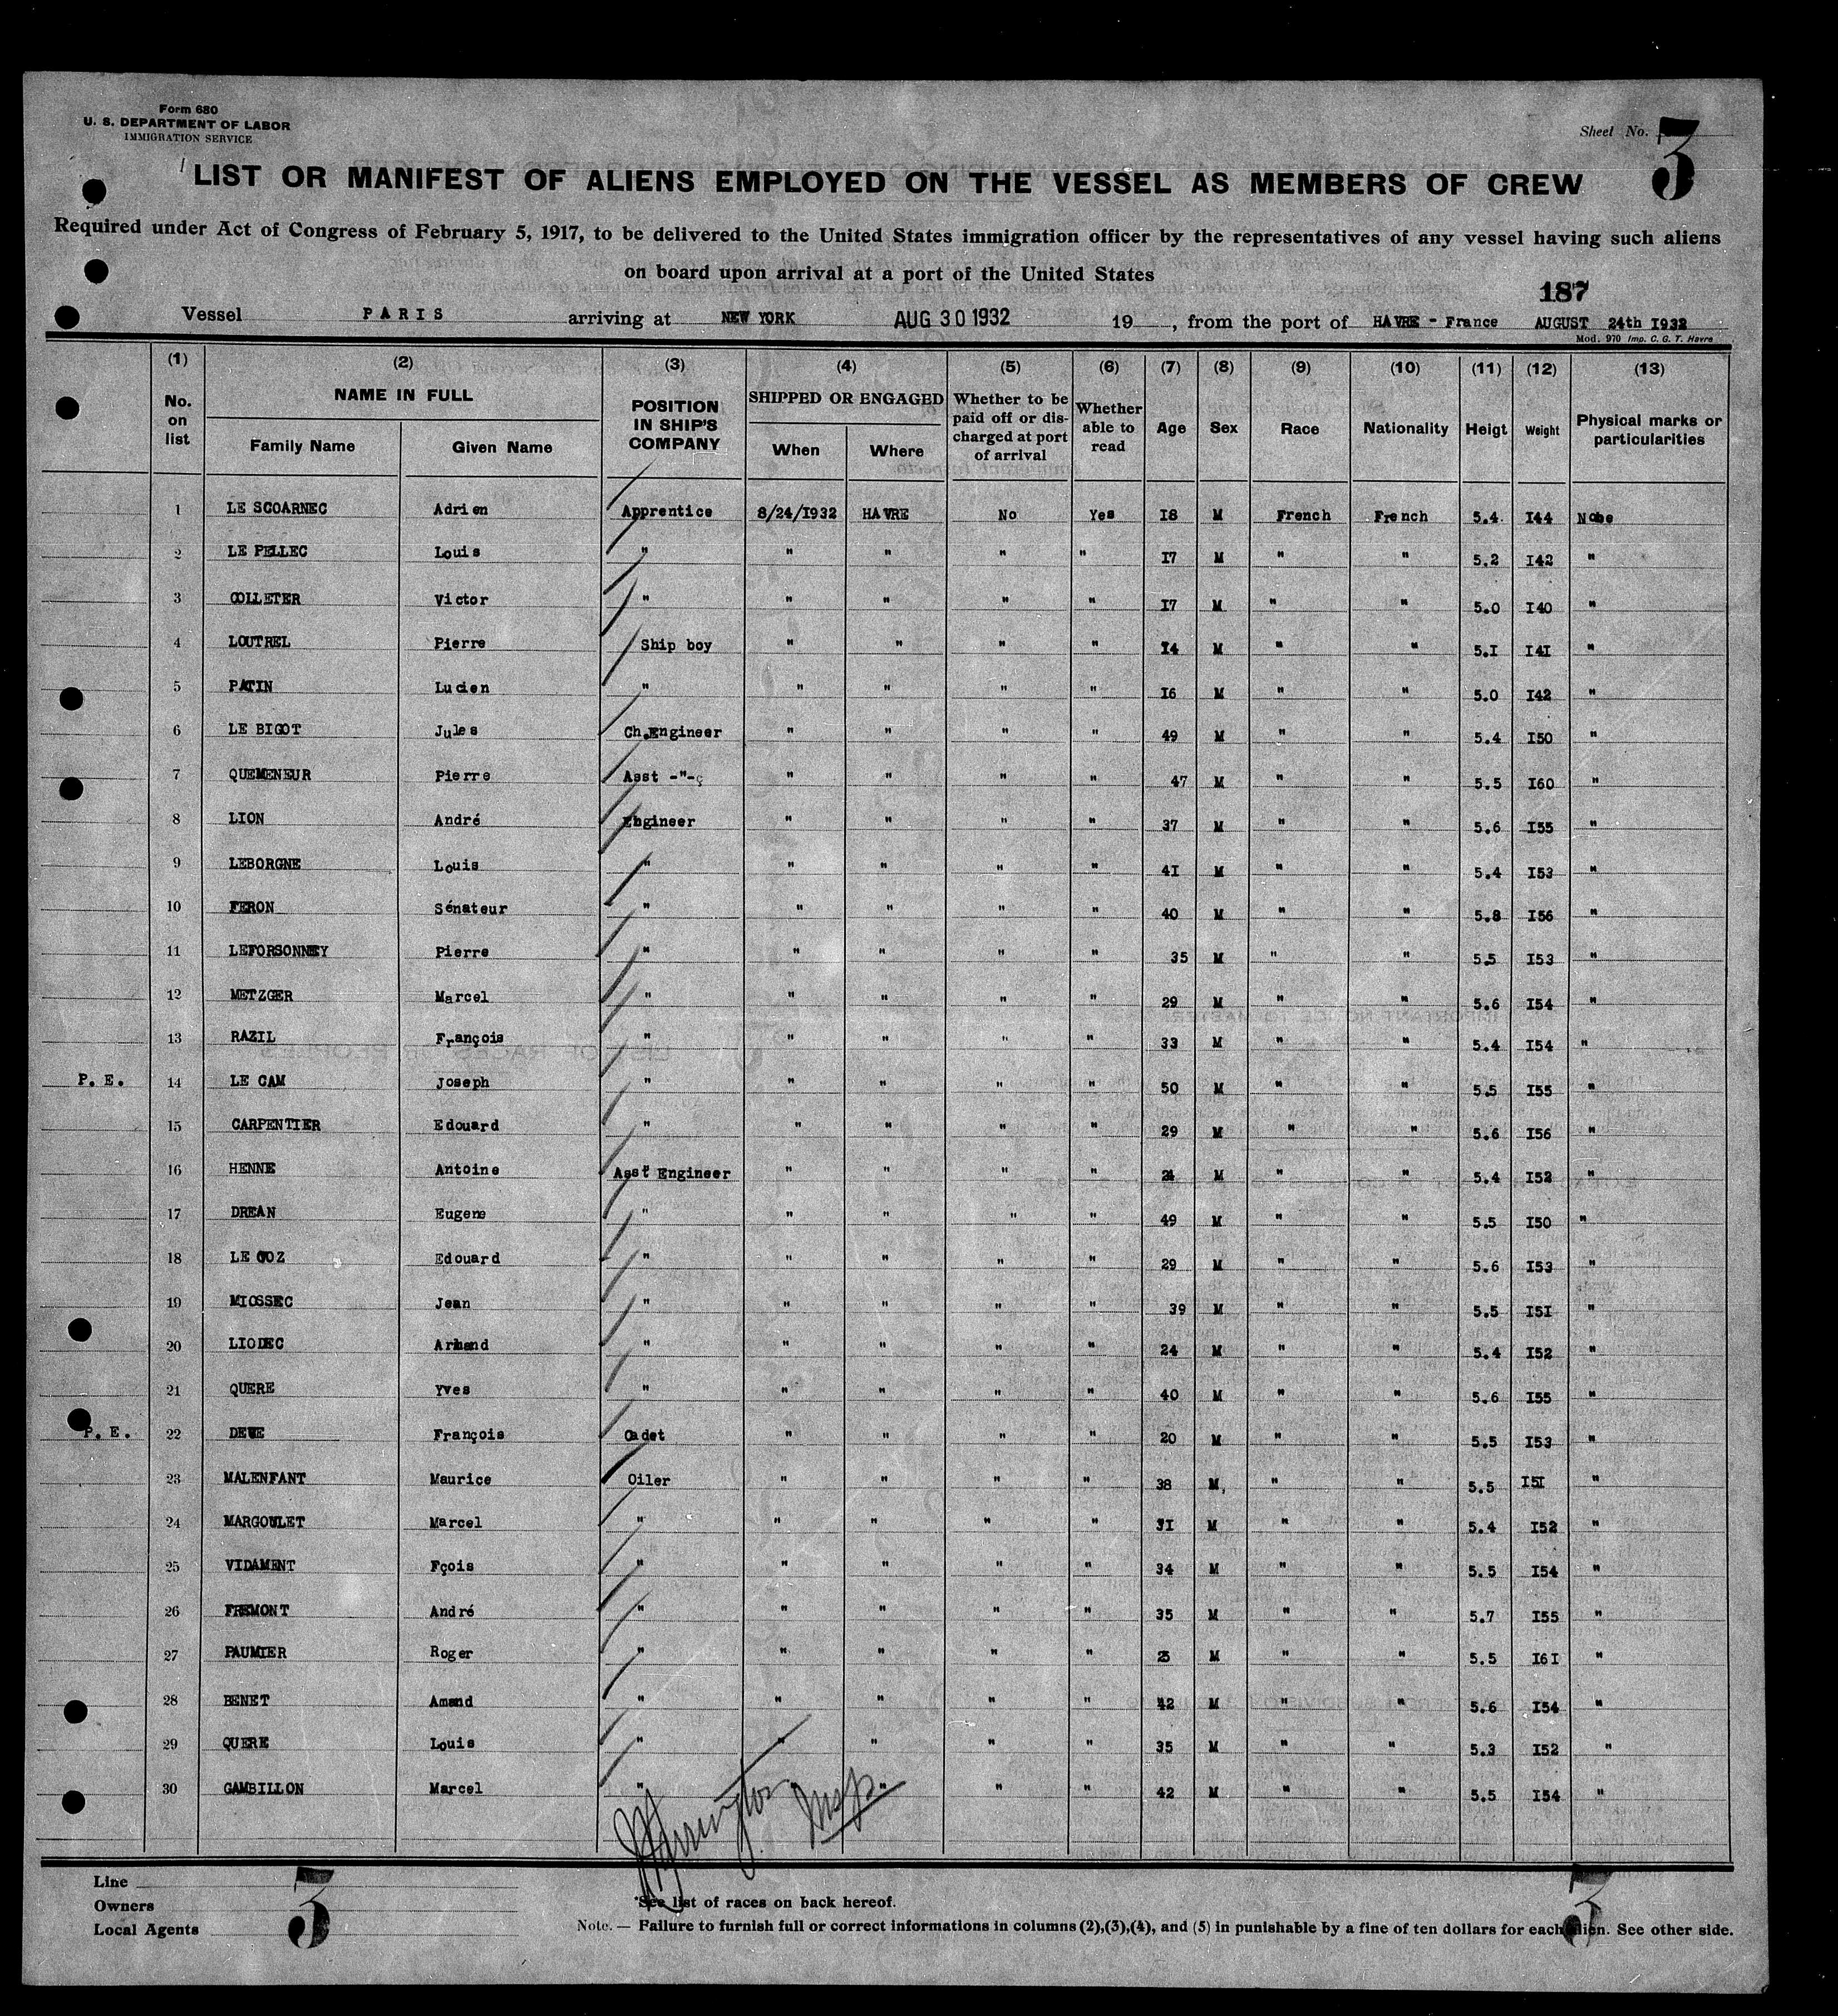 Form 680
U. S. DEPARTMENT OF LABOR
IMMIGRATION SERVICE
Sheet No. 3
LIST OR MANIFEST OF ALIENS EMPLOYED ON THE VESSEL AS MEMBERS OF CREW
Required under Act of Congress of February 5, 1917, to be delivered to the United States immigration officer by the representatives of any vessel having such aliens
on board upon arrival at a port of the United States
187
Vessel PARIS arriving at NEW YORK AUG 30 1932 19 , from the port of HAVRE - France AUGUST 24th I932
Mod. 970 Imp. C. G. T. Havre
(1) (2) (3) (4) (5) (6) (7) (8) (9) (10) (11) (12) (13)
No. on list NAME IN FULL Family Name Given Name POSITION IN SHIP'S COMPANY SHIPPED OR ENGAGED When Where Whether to be paid off or discharged at port of arrival Whether able to read Age Sex Race Nationality Heigt Weight Physical marks or particularities
1 LE SCOARNEC Adrien Apprentice 8/24/1932 HAVRE No Yes I8 M French French 5.4 I44 None
2 LE PELLEC Louis " " " " " I7 M " " 5.2 I42 "
3 COLLETER Victor " " " " " I7 M " " 5.0 I40 "
4 LOUTREL Pierre Ship boy " " " " I4 M " " 5.I I4I "
5 PATIN Lucien " " " " " I6 M " " 5.0 I42 "
6 LE BIGOT Jules Ch.Engineer " " " " 49 M " " 5.4 I50 "
7 QUEMENEUR Pierre Asst -"-ç " " " " 47 M " " 5.5 I60 "
8 LION André Engineer " " " " 37 M " " 5.6 I55 "
9 LEBORGNE Louis " " " " " 4I M " " 5.4 I53 "
10 FERON Sénateur " " " " " 40 M " " 5.8 I56 "
11 LEFORSONNEY Pierre " " " " " 35 M " " 5.5 I53 "
12 METZGER Marcel " " " " " 29 M " " 5.6 I54 "
13 RAZIL François " " " " " 33 M " " 5.4 I54 "
P. E. 14 LE CAM Joseph " " " " " 50 M " " 5.5 I55 "
15 CARPENTIER Edouard " " " " " 29 M " " 5.6 I56 "
16 HENNE Antoine Asst Engineer " " " " M " " 5.4 I52 "
17 DREAN Eugene " " " " " 49 M " " 5.5 I50 "
18 LE Edouard " " " " " 29 M " " 5.6 I53 "
19 MIOSSEC Jean " " " " " 39 M " " 5.5 I5I "
20 LIODEC Armand " " " " " 24 M " " 5.4 I52 "
21 QUERE Yves " " " " " 40 M " " 5.6 I55 "
P. E. 22 François Cadet " " " " 20 M " " 5.5 I53 "
23 MALENFANT Maurice Oiler " " " " 38 M, " " 5.5 I5I "
24 MARGOULET Marcel " " " " " 3I M " " 5.4 I52 "
25 VIDAMENT Fçois " " " " " 34 M " " 5.5 I54 "
26 FREMONT André " " " " " 35 M " " 5.7 I55 "
27 PAUMIER Roger " " " " " M " " 5.5 I6I "
28 BENET Amand " " " " " 42 M " " 5.6 I54 "
29 QUERE Louis " " " " " 35 M " " 5.3 I52 "
30 GAMBILLON Marcel " " " " 42 M " " 5.5 I54 "
Insp.
Line
Owners
Local Agents
3
*See list of races on back hereof.
Note. — Failure to furnish full or correct informations in columns (2),(3),(4), and (5) in punishable by a fine of ten dollars for each alien. See other side.
3